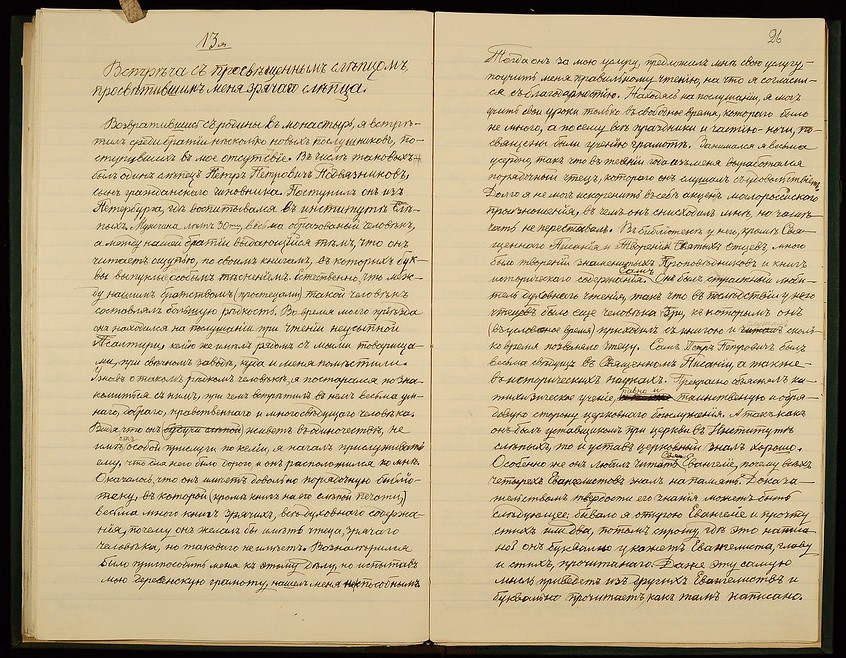 13я
Встрѣча съ просвѣщеннымъ слѣпцомъ,
просвѣтившимъ меня зрячаго слѣпца.
Возвратившись съ родины въ монастырь, я встрѣ-
тилъ среди братіи нѣсколько новыхъ послушниковъ, по-
ступившихъ въ мое отсутствіе. Въ числѣ таковыхъ
былъ одинъ слѣпецъ Петръ Петровичъ
сынъ гражданскаго чиновника. Поступилъ онъ изъ
Петербурга, гдѣ воспитывался въ институтѣ слѣ-
пыхъ. Мужчина лѣтъ 30ти, весьма образованный человѣкъ,
а между нашей братіи выдающійся тѣмъ, что онъ
читаетъ ощупью, по своимъ книгамъ, въ которыхъ бук-
вы выпуклые особымъ тисненіемъ. Естественно, что меж-
ду нашимъ братствомъ (простецами) такой человѣкъ
составлялъ большую рѣдкость. Во время моего пріѣзда
онъ находился на послушаніи при чтеніи неусыпной
Псалтири, келію же имѣлъ рядомъ съ моими товарища-
ми, при свѣчномъ заводѣ, куда и меня помѣстили.
Узнавъ о такомъ рѣдкомъ человѣкѣ, я постарался позна-
комится съ нимъ, при чемъ встрѣтилъ въ немъ весьма ум-
наго, добраго, нравственнаго и многосвѣдущаго человѣка.
Видя что онъ будучи слѣпой живетъ въ одиночествѣ, не
имѣетъ особой прислуги по келіи, я началъ прислуживать
ему, что для него было дорого и онъ расположился ко мнѣ.
Оказалось, что онъ имѣетъ довольно порядочную библіо-
теку, въ которой (кромѣ книгъ на его слѣпой печати,)
весьма много книгъ зрячихъ, весь духовнаго содержа-
нія, почему онъ желалъ бы имѣть чтеца, зрячаго
человѣка, но таковаго не имѣетъ. Вознамѣрился
было приспособить меня къ этому дѣлу, но испытавъ
мою деревенскую грамоту, нашелъ меня неспособнымъ
26
Тогда онъ за мою услугу, предложилъ мнѣ свою услугу,
поучить меня правильному чтенію, на что я согласил-
ся съ благодарностію. Находясь на послушаніи, я могъ
брать свои уроки только въ свободное время, котораго было
не много, а посему всѣ праздники и частію-ночи, по-
священы были ученію грамотѣ. Занимался я весьма
усердно, такъ что въ теченіи года изъ меня выработался
порядочный чтецъ, котораго онъ слушалъ съ удовольствіемъ,
Долго я не могъ искоренить въ себѣ акцентъ малороссійскаго
произношенія, въ чемъ онъ снисходилъ мнѣ, но замѣ-
чать не переставалъ. Въ библіотекѣ у него, кромѣ Свя-
щеннаго Писанія и Твореній Святыхъ Отцевъ, много
было твореній знаменитыхъ Проповѣдниковъ и книгъ
историческаго содержанія. Самъ Онъ былъ страстный люби-
тель духовнаго чтенія, такъ что въ послѣдствіи у него
чтецовъ было еще человѣка три, къ которымъ онъ
(въ условное время) приходилъ съ книгою и читалъ сколь-
ко время позволяло чтецу. Самъ Петръ Петровичъ былъ
весьма свѣдущъ въ Священномъ Писаніи, а также
въ историческихъ наукахъ. Прекрасно объяснялъ ка-
тихизическое ученіе, тавно и таинственную и обря-
довую сторону церковнаго богослуженія. А такъ какъ
онъ былъ уставщикомъ при церкви въ Институтѣ
слѣпыхъ, то и уставъ церковный зналъ хорошо.
Особенно же онъ любилъ читать Св. Евангеліе, почему всѣхъ
четырехъ Евангелистовъ зналъ на память. Доказа-
тельствомъ твердости его знанія можетъ быть
слѣдующее: бывало я открою Евангеліе и прочту
стихъ или два, потомъ спрошу, гдѣ это написа-
но? онъ буквально укажетъ Евангелиста, главу
и стихъ, прочитаннаго. Даже эту самую
мысль приведетъ изъ другихъ Евангелистовъ и
буквально прочитаетъ какъ тамъ написано.